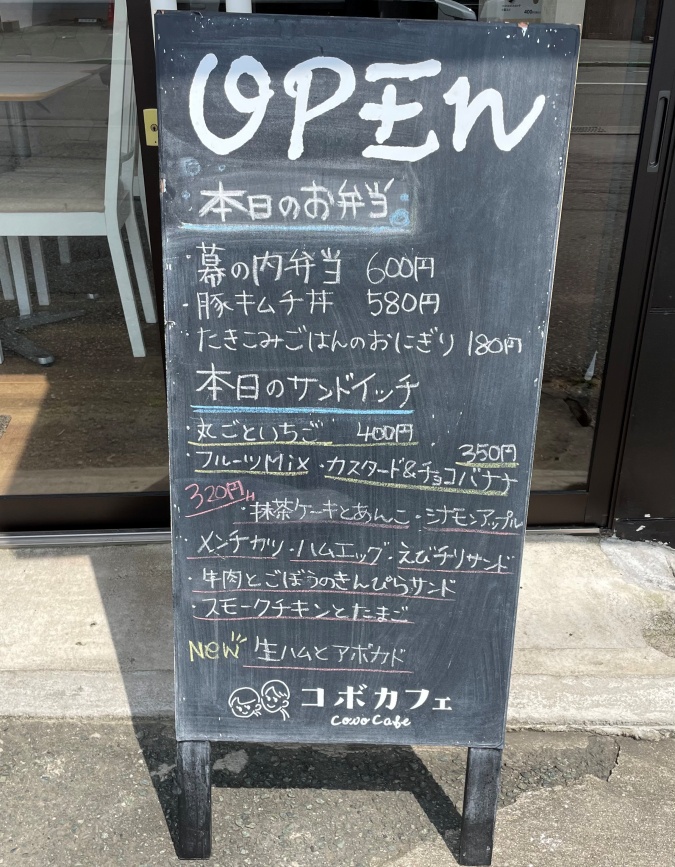 OPEN
本日のお弁当
・幕の内弁当 600円
・豚キムチ丼 580円
たきこみごはんのおにぎり 180円
本日のサンドイッチ
・丸ごといちご 400円
350円
・フルーツMix ・カスタード&チョコバナナ
320円
・抹茶ケーキとあんこ ・シナモンアップル
・メンチカツ ・ハムエッグ ・えびチリサンド
・牛肉とごぼうのきんぴらサンド
・スモークチキンとたまご
NEW 生ハムとアボカド
コボカフェ
Covo Cafe